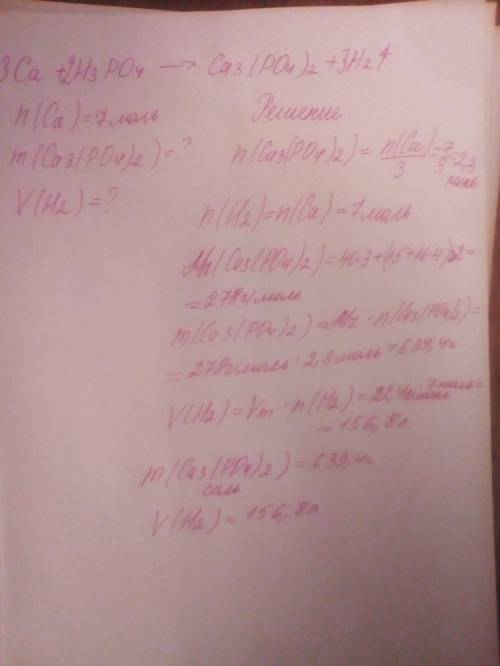 3Ca + 2H3PO4 → Ca3(PO4)2 + 3H2↑
n(Ca) = 7 моль
Решение.
m(Ca3(PO4)2) = ?
n(Ca3(PO4)2) = n(Ca)/3 = 7/3 = 2,3 моль
V(H2) = ?
n(H2) = n(Ca) = 7 моль
Mr(Ca3(PO4)2) = 40·3 + (15 + 16·4)·2 =
= 278 г/моль
m(Ca3(PO4)2) = Mr · n(Ca3(PO4)2) =
= 278 г/моль · 2,3 моль = 639,4 г
V(H2) = Vm · n(H2) = 22,4 л/моль · 7 моль =
= 156,8 л.
m(Ca3(PO4)2) = 639,4 г
соль
V(H2) = 156,8 л